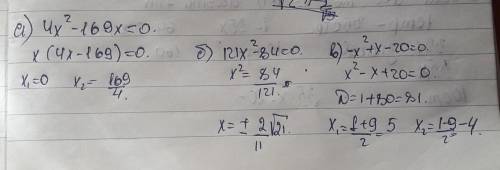 а) 4x² - 169x = 0.
x (4x - 169) = 0.
x₁ = 0   x₂ = 169/4.
б) 121x² = 84 = 0.
x² = 84/121.
x = ± 2√21/11
в) -x² + x - 20 = 0.
x² - x + 20 = 0.
D = 1 + 80 = 81.
x₁ = 1+9/2 = 5   x₂ = 1-9/2 = -4.